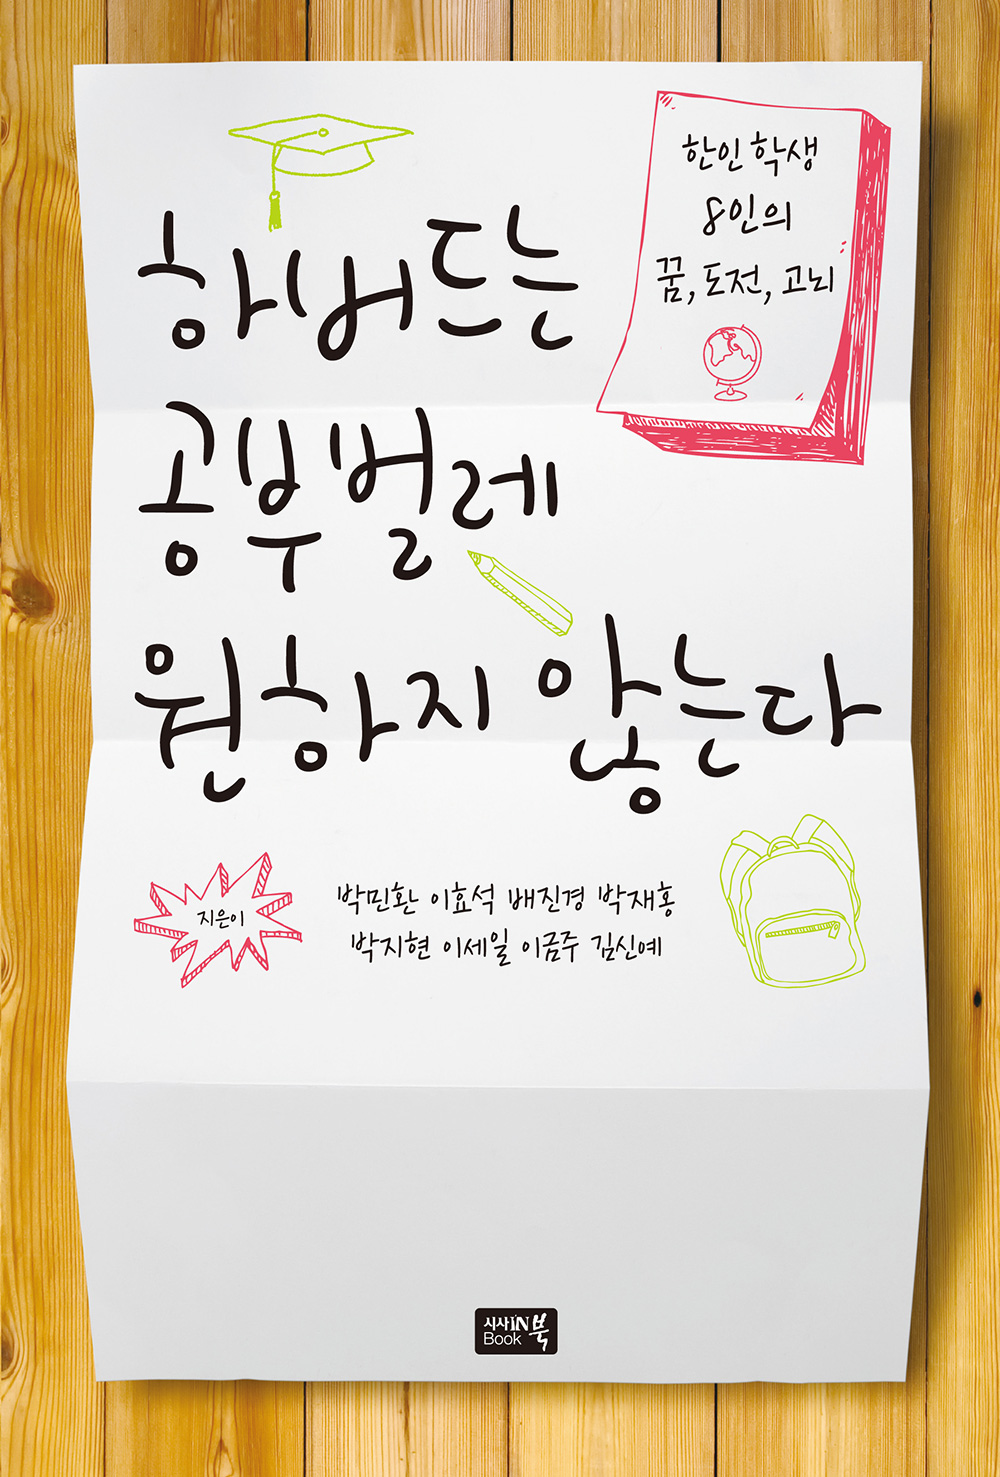 한인 학생
8인의
꿈, 도전, 고뇌
하버드는
공부벌레
원하지 않는다
지은이
박민환 이효석 배진경 박재홍
박지현 이세일 이금주 김신예
시사iN 북
Book